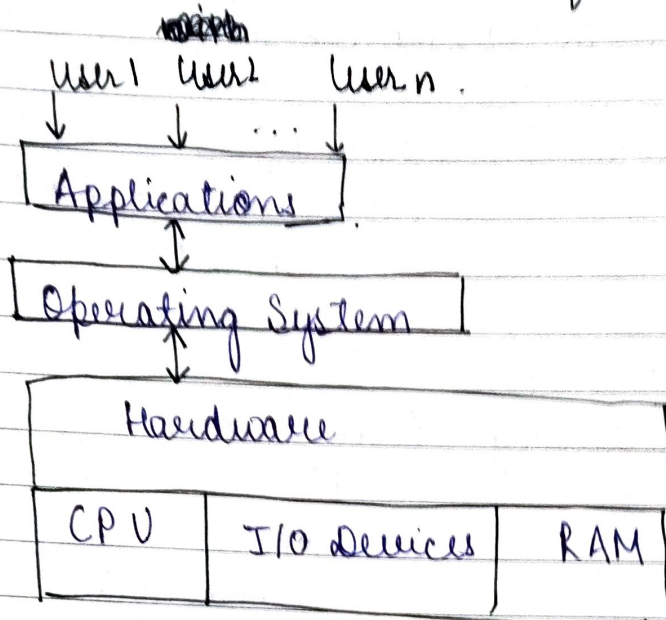 User 1 User 2 User n.
...
Applications
Operating System
Hardware
CPU I/O Devices RAM